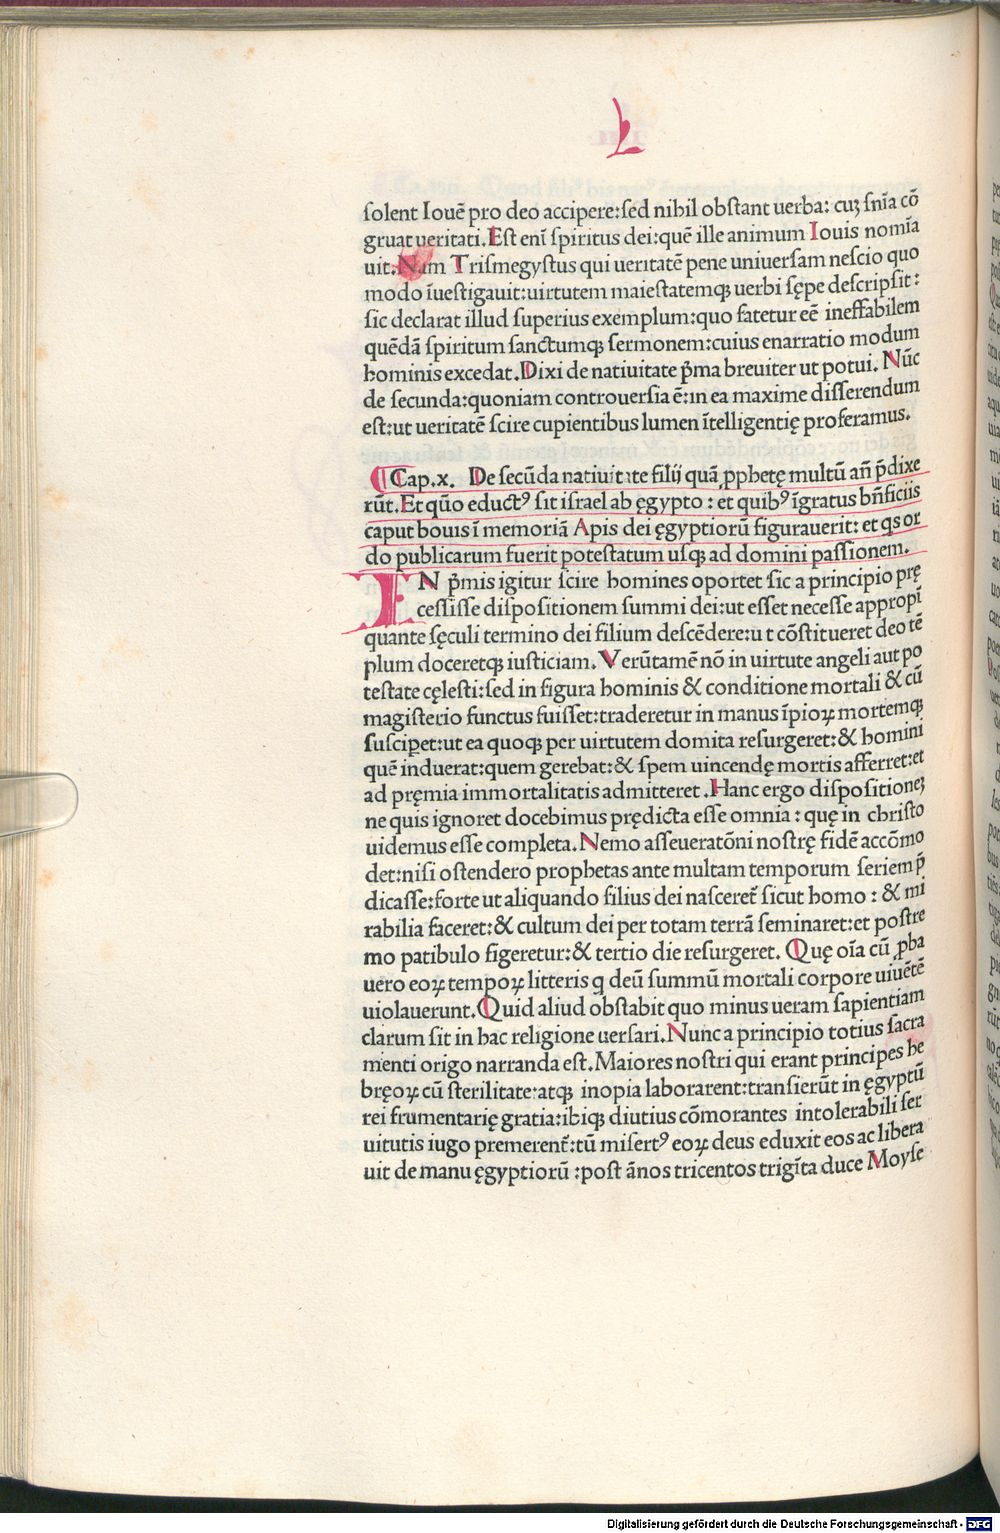 L
solent Iouē pro deo accipere:sed nihil obstant uerba: cuꝫ snīa cō
gruat ueritati.Est enī spiritus dei:quē ille animum Iouis nomīa
uit.Nam Trismegystus qui ueritatē pene uniuersam nescio quo
modo īuestigauit:uirtutem maiestatemqꝫ uerbi sępe descripsit:
sic declarat illud superius exemplum:quo fatetur eē ineffabilem
quēdā spiritum sanctumqꝫ sermonem:cuius enarratio modum
hominis excedat.Dixi de natiuitate p̄ma breuiter ut potui. Nūc
de secunda:quoniam controuersia ē:in ea maxime disserendum
est:ut ueritatē scire cupientibus lumen ītelligentię proferamus.
¶ Cap.x. De secūda natiuitate filij quā ꝓphetę multū an̄ p̄dixe
rūt.Et quō eductꝰ sit israel ab ęgypto : et quibꝰ īgratus bn̄ficiis
caput bouis ī memoriā Apis dei ęgyptiorū figurauerit: et qs or
do publicarum fuerit potestatum usqꝫ ad domini passionem.
IN p̄mis igitur scire homines oportet sic a principio prę
cessisse dispositionem summi dei:ut esset necesse appropī
quante sęculi termino dei filium descēdere:u t cōstitueret deo tē
plum doceretqꝫ iusticiam. Verūtamē nō in uirtute angeli aut po
testate cęlesti:sed in figura hominis & conditione mortali & cū
magisterio functus fuisset:traderetur in manus īpioꝝ mortemqꝫ
suscipet:ut ea quoqꝫ per uirtutem domita resurgeret:& homini
quē induerat:quem gerebat:& spem uincendę mortis afferret:et
ad pręmia immortalitatis admitteret .Hanc ergo dispositioneꝫ
ne quis ignoret docebimus prędicta esse omnia : quę in christo
uidemus esse completa. Nemo asseueratōni nostrę fidē accōmo
det:nisi ostendero prophetas ante multam temporum seriem p̄
dicasse:forte ut aliquando filius dei nasceret̄ sicut homo : & mi
rabilia faceret:& cultum dei per totam terrā seminaret:et postre
mo patibulo figeretur:& tertio die resurgeret. Quę oīa cū ꝓba
uero eoꝝ tempoꝝ litteris q deū summū mortali corpore uiuētē
uiolauerunt.Quid aliud obstabit quo minus ueram sapientiam
clarum sit in hac religione uersari.Nunc a principio totius sacra
menti origo narranda est.Maiores nostri qui erant principes he
bręoꝝ cū sterilitate:atqꝫ inopia laborarent:transierūt in ęgyptū
rei frumentarię gratia:ibiqꝫ diutius cōmorantes intolerabili ser
uitutis iugo premerent̄:tū misertꝰ eoꝝ deus eduxit eos ac libera
uit de manu ęgyptiorū :post ānos tricentos trigīta duce Moyse
Digitalisierung gefördert durch die Deutsche Forschungsgemeinschaft - DFG